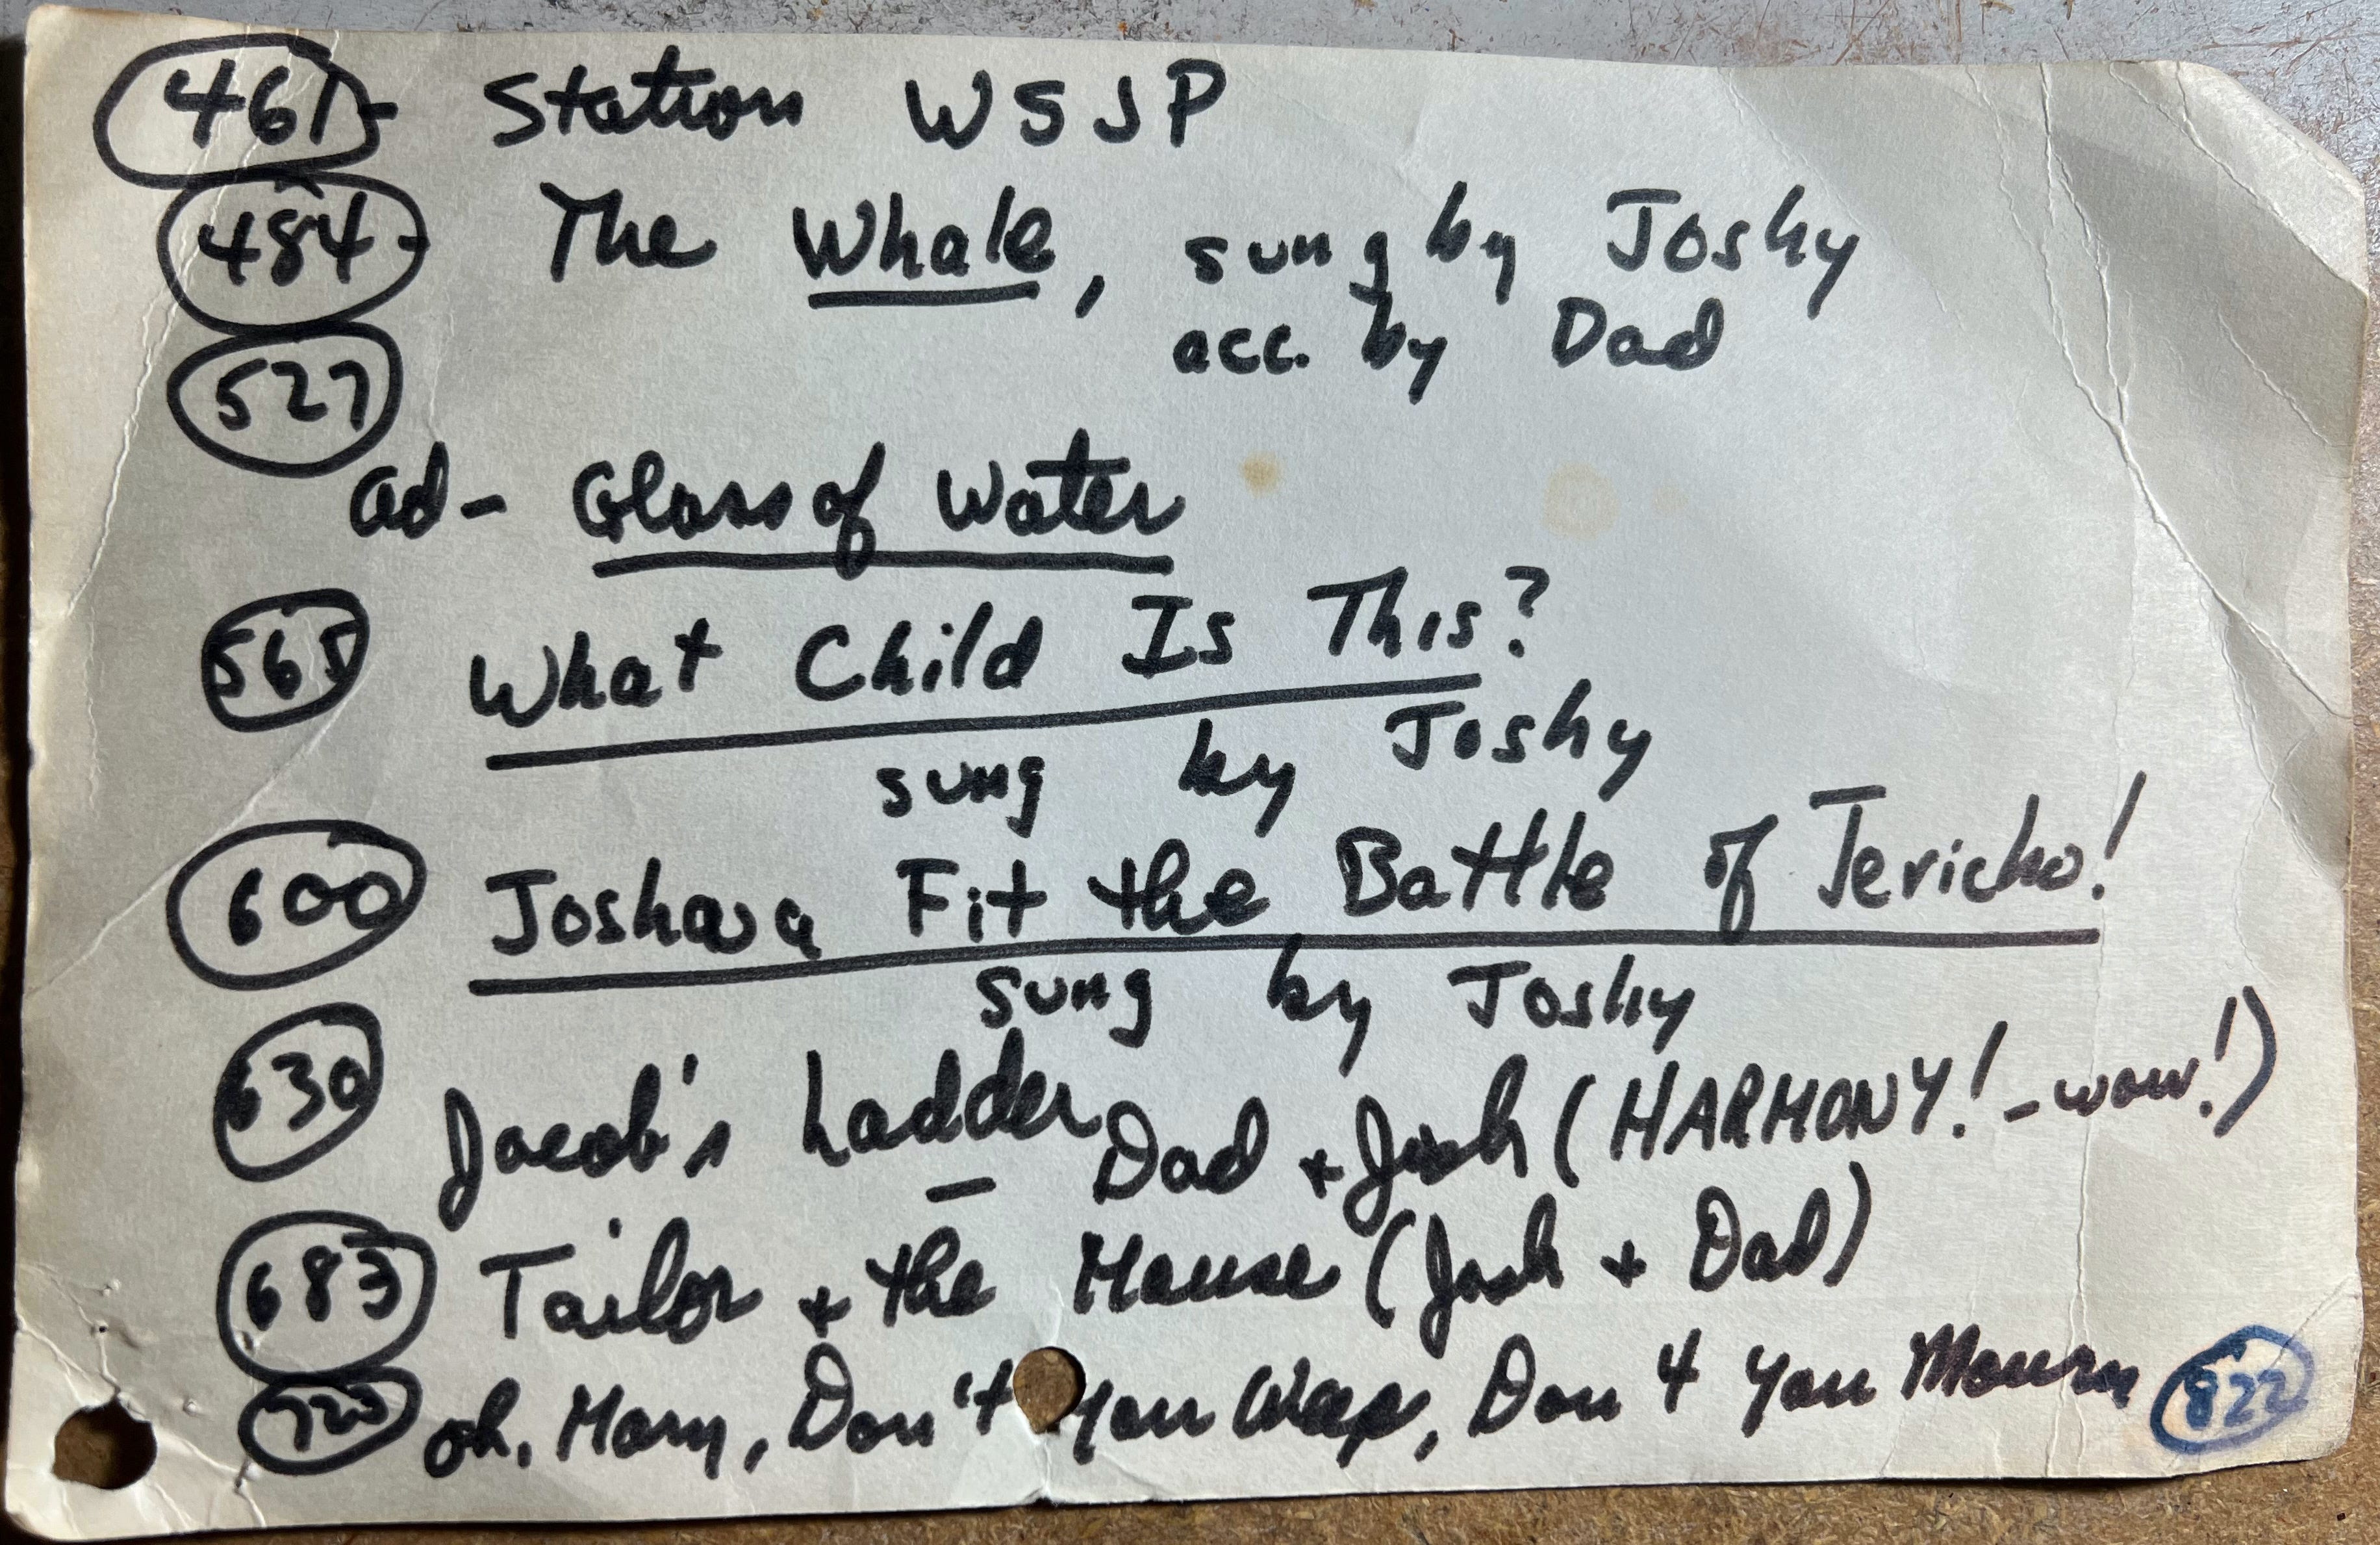 461- Station WSJP
484- The Whale, sung by Joshy
acc. by Dad
527
ad- Glass of Water
565 What Child Is This?
sung by Joshy
600 Joshua Fit the Battle of Jericho!
sung by Joshy
630 Jacob's Ladder - Dad + Josh (HARMONY! - wow!)
683 Tailor + the Mouse (Josh + Dad)
oh, Mary, Don't You Weep, Don't You Mourn 822